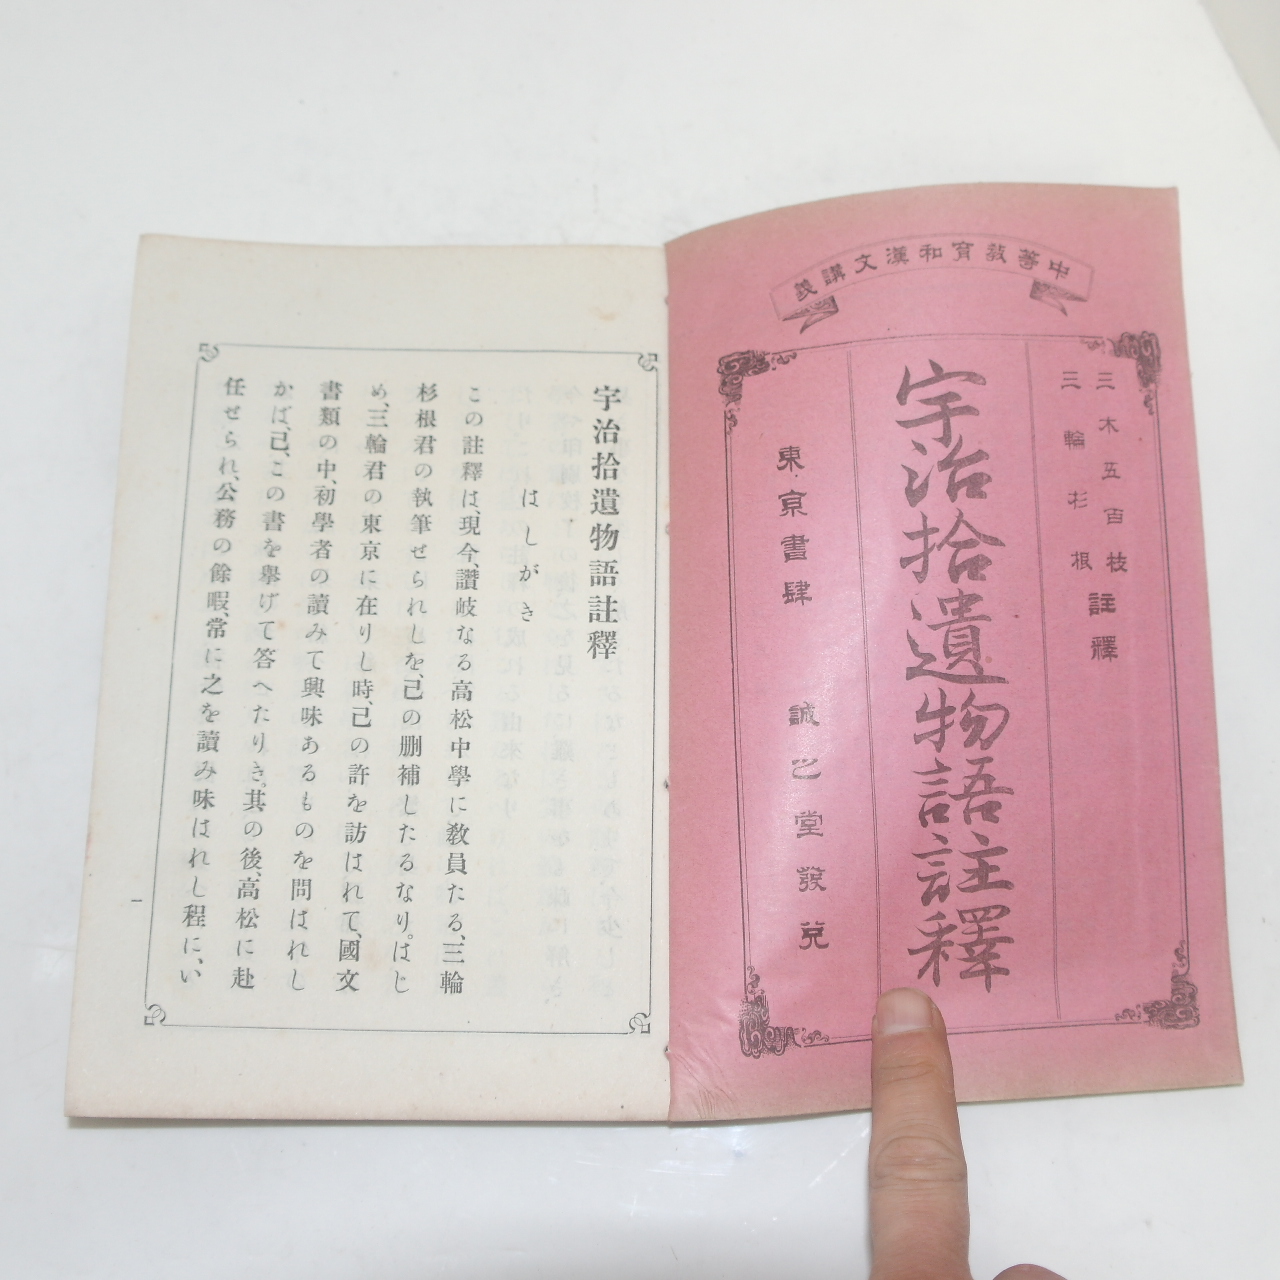 中等敎育和漢文講義
三木五百枝
三輪杉根
註釋
宇治拾遺物語註釋
東京書肆 誠之堂發兌
宇治拾遺物語註釋
はしがき
この註釋は、現今、讚岐なる高松中學に敎員たる、三輪
杉根君の執筆せられしを、己の刪補したるなり。はじ
め、三輪君の東京に在りし時、己の許を訪はれて、國文
書類の中、初學者の讀みて興味あるものを問はれし
かば、己、この書を擧げて答へたりき。其の後、高松に赴
任せられ、公務の餘暇、常に之を讀み味はれし程に、い
一